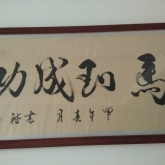 馬到成功
甲午年春月 书